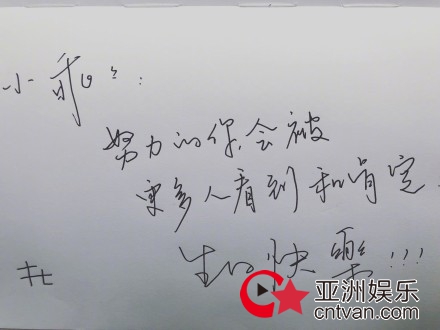 小乖々：
努力的你，会被
更多人看到和肯定.
生日快樂!!!
亚洲娱乐
cntvan.com